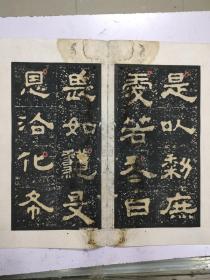 是以黎庶
愛若冬日
畏如龝旻
恩洽化布